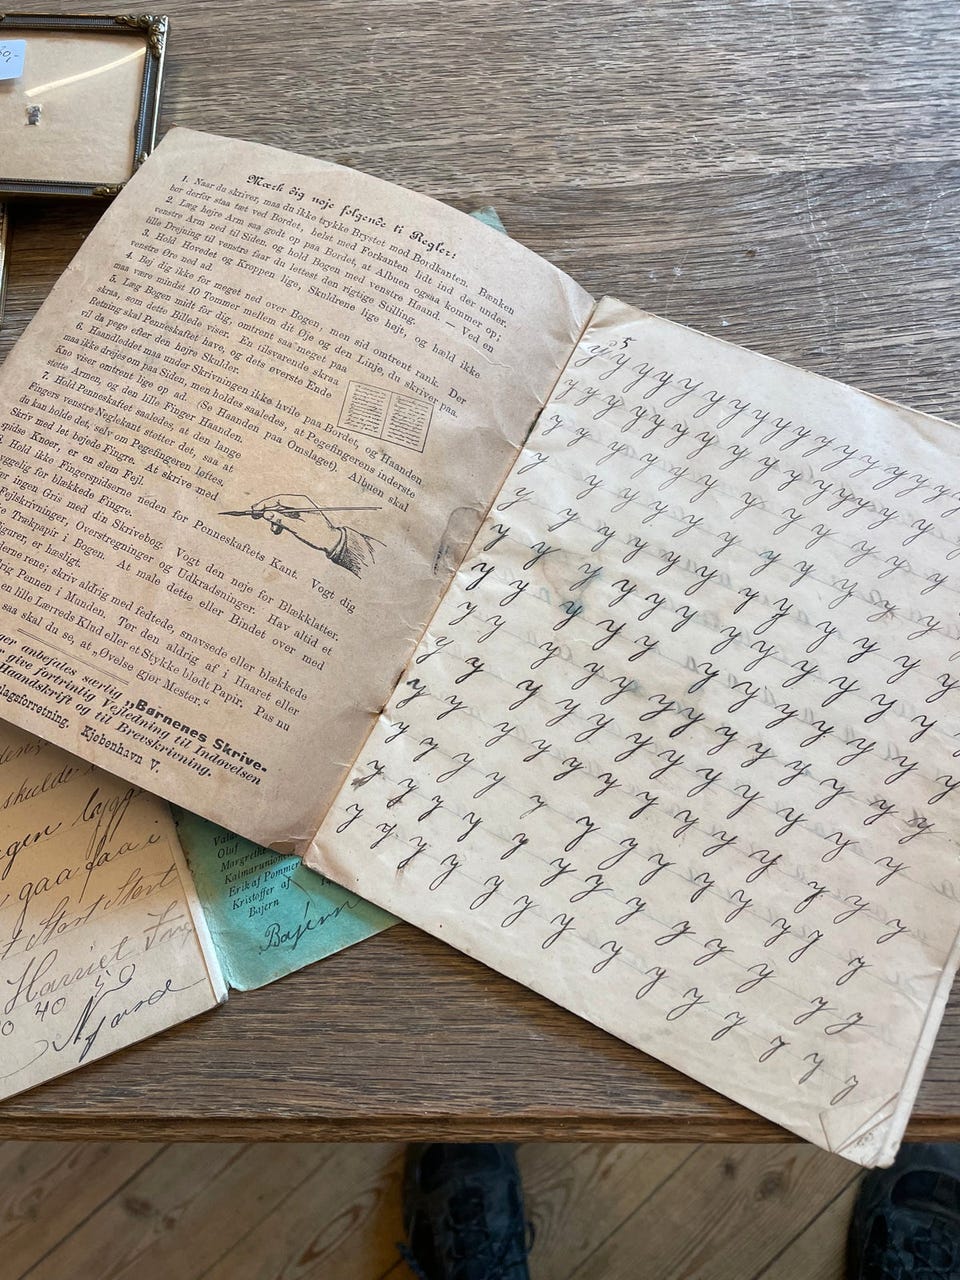 Mærk dig nøje følgende ti Regler:
1. Naar du skriver, maa du ikke trykke Brystet mod Bordkanten. Bænken
bør derfor staa tæt ved Bordet, helst med Forkanten lidt ind der under.
2. Læg højre Arm saa godt op paa Bordet, at Albuen ogsaa kommer op;
venstre Arm ned til Siden, og hold Bogen med venstre Haand. — Ved en
lille Drejning til venstre faar du lettest den rigtige Stilling.
3. Hold Hovedet og Kroppen lige, Skuldrene lige højt, og hæld ikke
venstre Øre ned ad.
4. Bøj dig ikke for meget ned over Bogen, men sid omtrent rank. Der
maa være mindst 10 Tommer mellem dit Øje og den Linje, du skriver paa.
5. Læg Bogen midt for dig, omtrent saa meget paa
skraa, som dette Billede viser. En tilsvarende skraa
Retning skal Penneskaftet have, og dets øverste Ende
vil da pege efter den højre Skulder.
6. Haandleddet maa under Skrivningen ikke hvile paa Bordet, og Haanden
maa ikke drejes om paa Siden, men holdes saaledes, at Pegefingerens inderste
Kno viser omtrent lige op ad. (Se Haanden paa Omslaget). Albuen skal
støtte Armen, og den lille Finger Haanden.
7. Hold Penneskaftet saaledes, at den lange
Fingers venstre Neglekant støtter det, saa at
du kan holde det, selv om Pegefingeren løftes.
Skriv med let bøjede Fingre. At skrive med
spidse Knoer, er en slem Fejl.
Hold ikke Fingerspidserne neden for Penneskaftets Kant. Vogt dig
for blækkede Fingre.
ingen Gris med din Skrivebog. Vogt den nøje for Blækklatter,
Fejlskrivninger, Overstregninger og Udkradsninger. Hav altid et
Trækpapir i Bogen. At male dette eller Bindet over med
Figurer, er hæsligt.
rene; skriv aldrig med fedtede, snavsede eller blækkede
Pennen i Munden. Tør den aldrig af i Haaret eller
en lille Lærreds Klud eller et Stykke blødt Papir. Pas nu
saa skal du se, at „Øvelse gjør Mester.“
anbefales særlig „Børnenes Skrive-
give fortrinlig Vejledning til Indøvelsen
Haandskrift og til Brevskrivning.
Kjøbenhavn V.
5
y y y y y y y y y y y y y y y y y y y y
y y y y y y y y y y y y y y y y y y
y y y y y y y y y y y y
y y y y y y y y y y y
y y y y y y y y y y y y
y y y y y y y y y y y y
y y y y y y y y y y y
y y y y y y y y y y y
y y y y y y y y y y y y
y y y y y y y y y y y y
y y y y y y y y y y y
y y y y y y y y y y y
y y y y y y y y y y y y y
skulde
gaa
Stort Stort
Harriet
40 50
Oluf
Margrethe
Kalmarunionen
Erik af Pommern
Kristoffer af
Bajern
Bajern